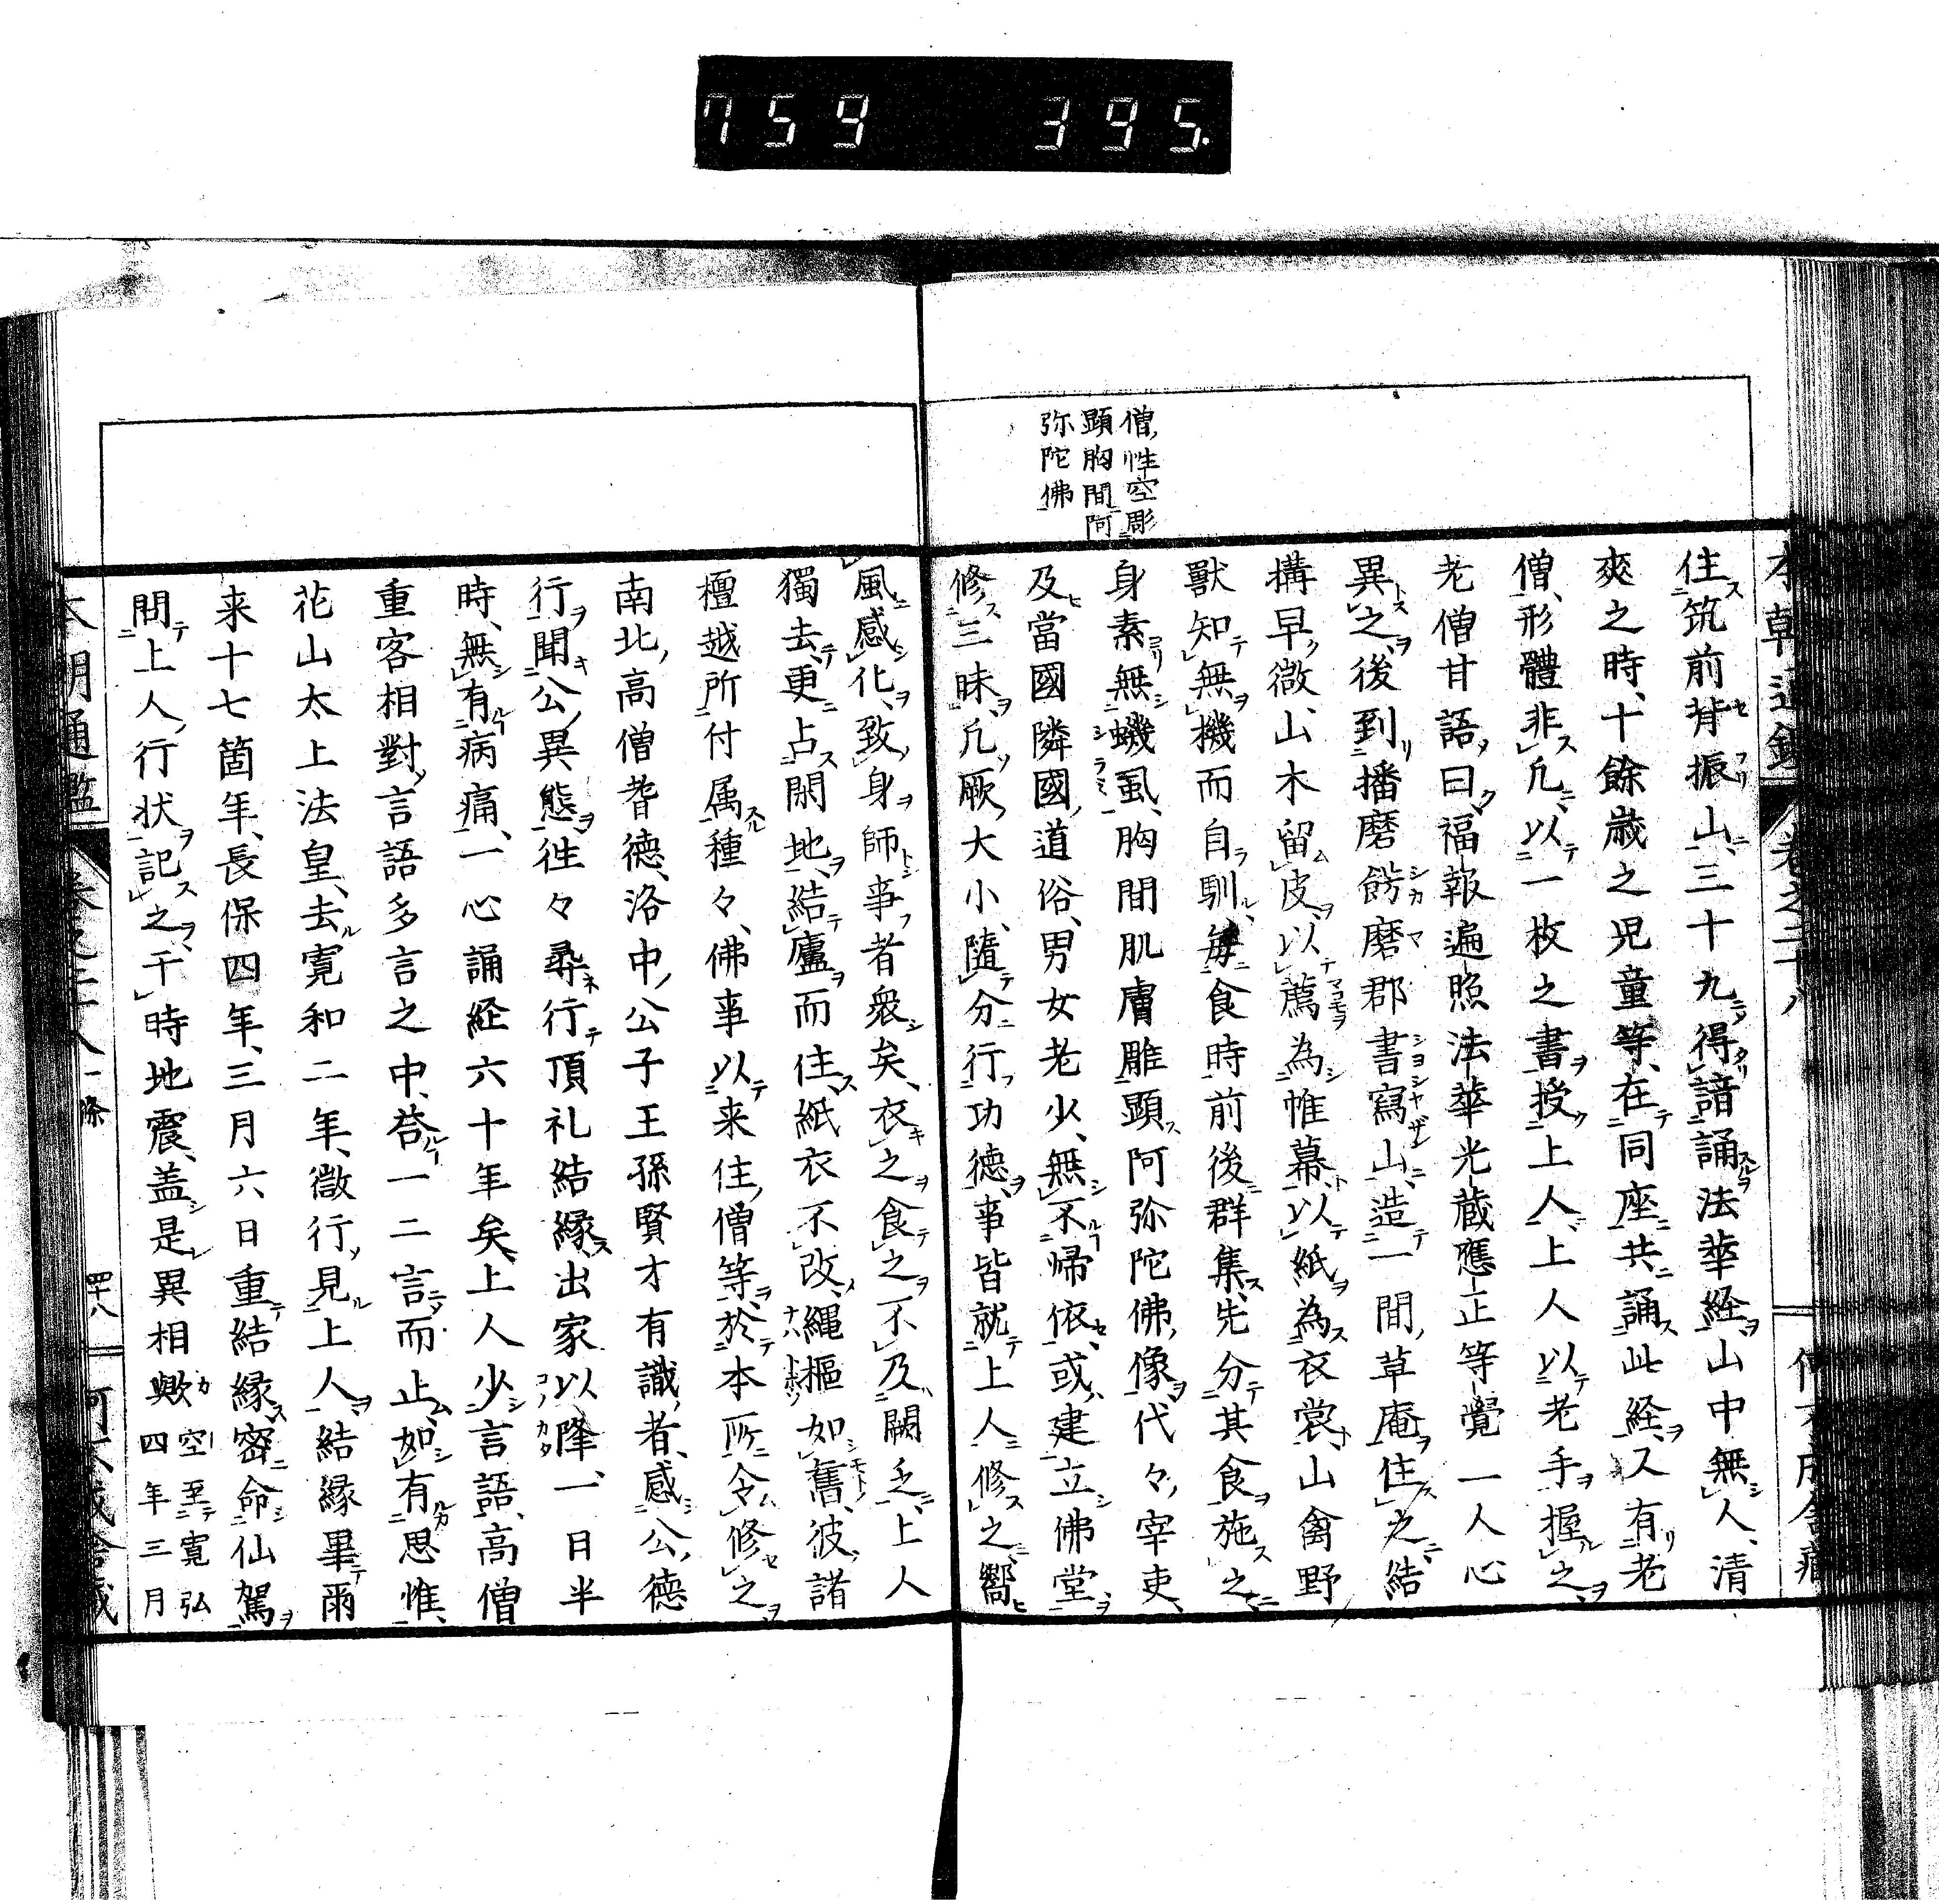 759 395.
僧性空彫
顕胸間阿
弥陀佛
住筑前背振山三十九得諳誦法華経山中無人清
爽之時十餘歳之児童等在同座共誦此経又有老
僧形體非凡以一枚之書授上人上人以老手握之
老僧甘語曰福報遍照法華光蔵應正等覺一人心
異之後到播磨餝磨郡書寫山造一間草庵住之結
搆早微山木留皮以薦為帷幕以紙為衣裳山禽野
獸知無機而自馴毎食時前後群集先分其食施之
身素無蟣虱胸間肌膚雕顕阿弥陀佛像代々宰吏
及當國隣國道俗男女老少無不帰依或建立佛堂
修三昧凡厥大小随分行功徳事皆就上人修之嚮
風感化致身師事者衆矣衣之食之不及闕乏上人
獨去更占閑地結廬而住紙衣不改縄樞如舊彼諸
檀越所付属種々佛事以来住僧等於本所令修之
南北高僧耆徳洛中公子王孫賢才有識者感公徳
行聞公異態往々尋行頂礼結縁出家以降一日半
時無有病痛一心誦経六十年矣上人少言語高僧
重客相對言語多言之中荅一二言而止如有思惟
花山太上法皇去寛和二年微行見上人結縁畢爾
来十七箇年長保四年三月六日重結縁密命仙駕
問上人行状記之于時地震盖是異相歟空至寛弘
四年三月
本朝通鑑 卷之二十八 一條 四十八